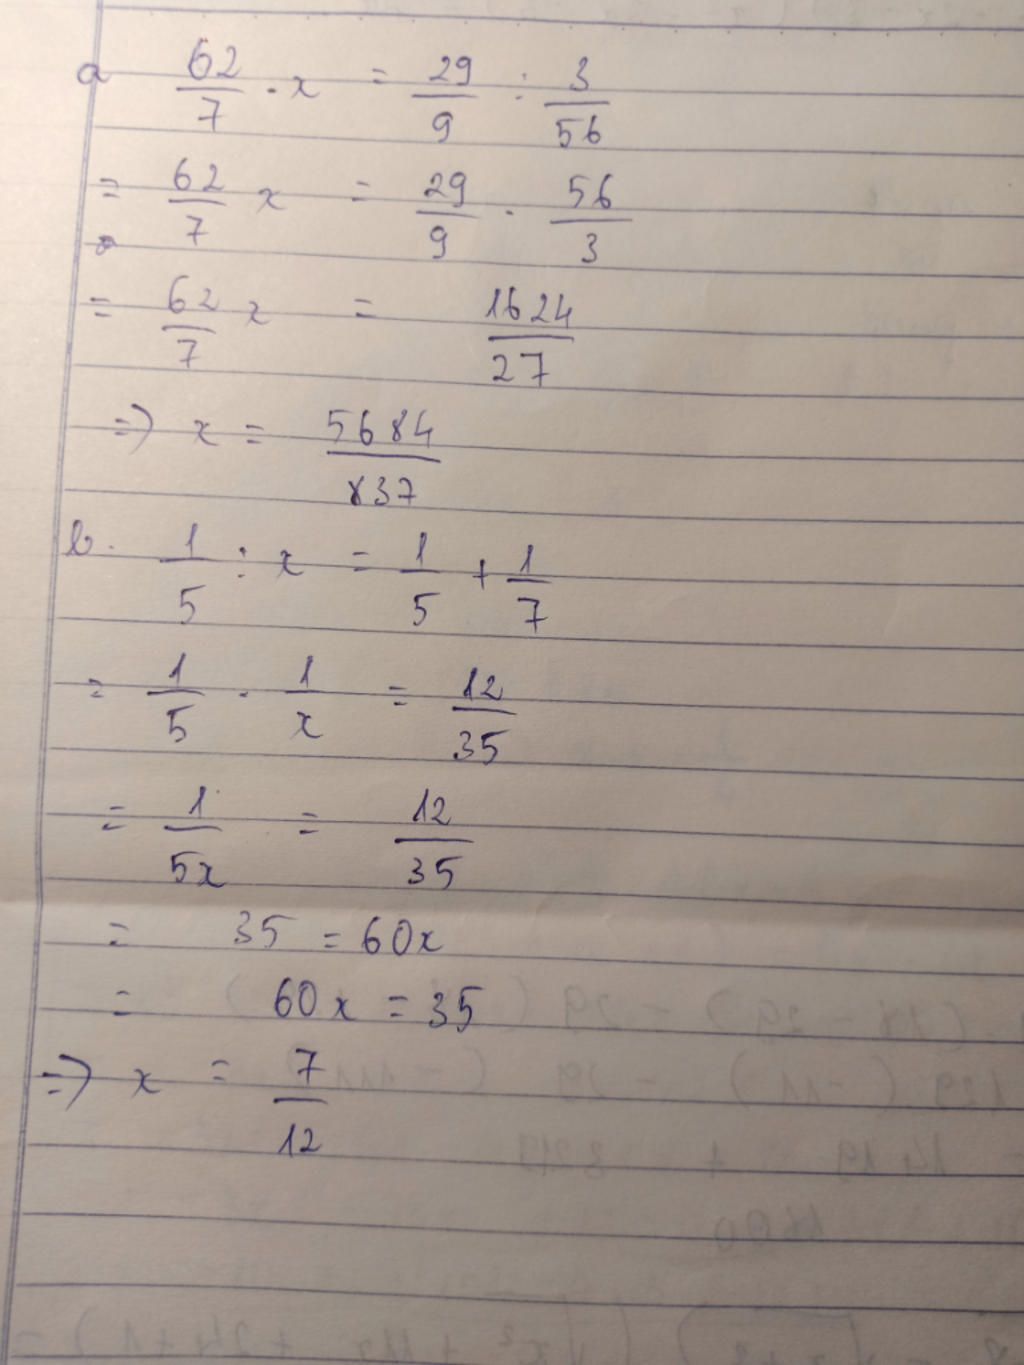 a 62/7 . x = 29/9 : 3/56
= 62/7 x = 29/9 . 56/3
= 62/7 x = 1624/27
=> x = 5684/837
b. 1/5 : x = 1/5 + 1/7
= 1/5 . 1/x = 12/35
= 1/5x = 12/35
= 35 = 60x
= 60x = 35
=> x = 7/12